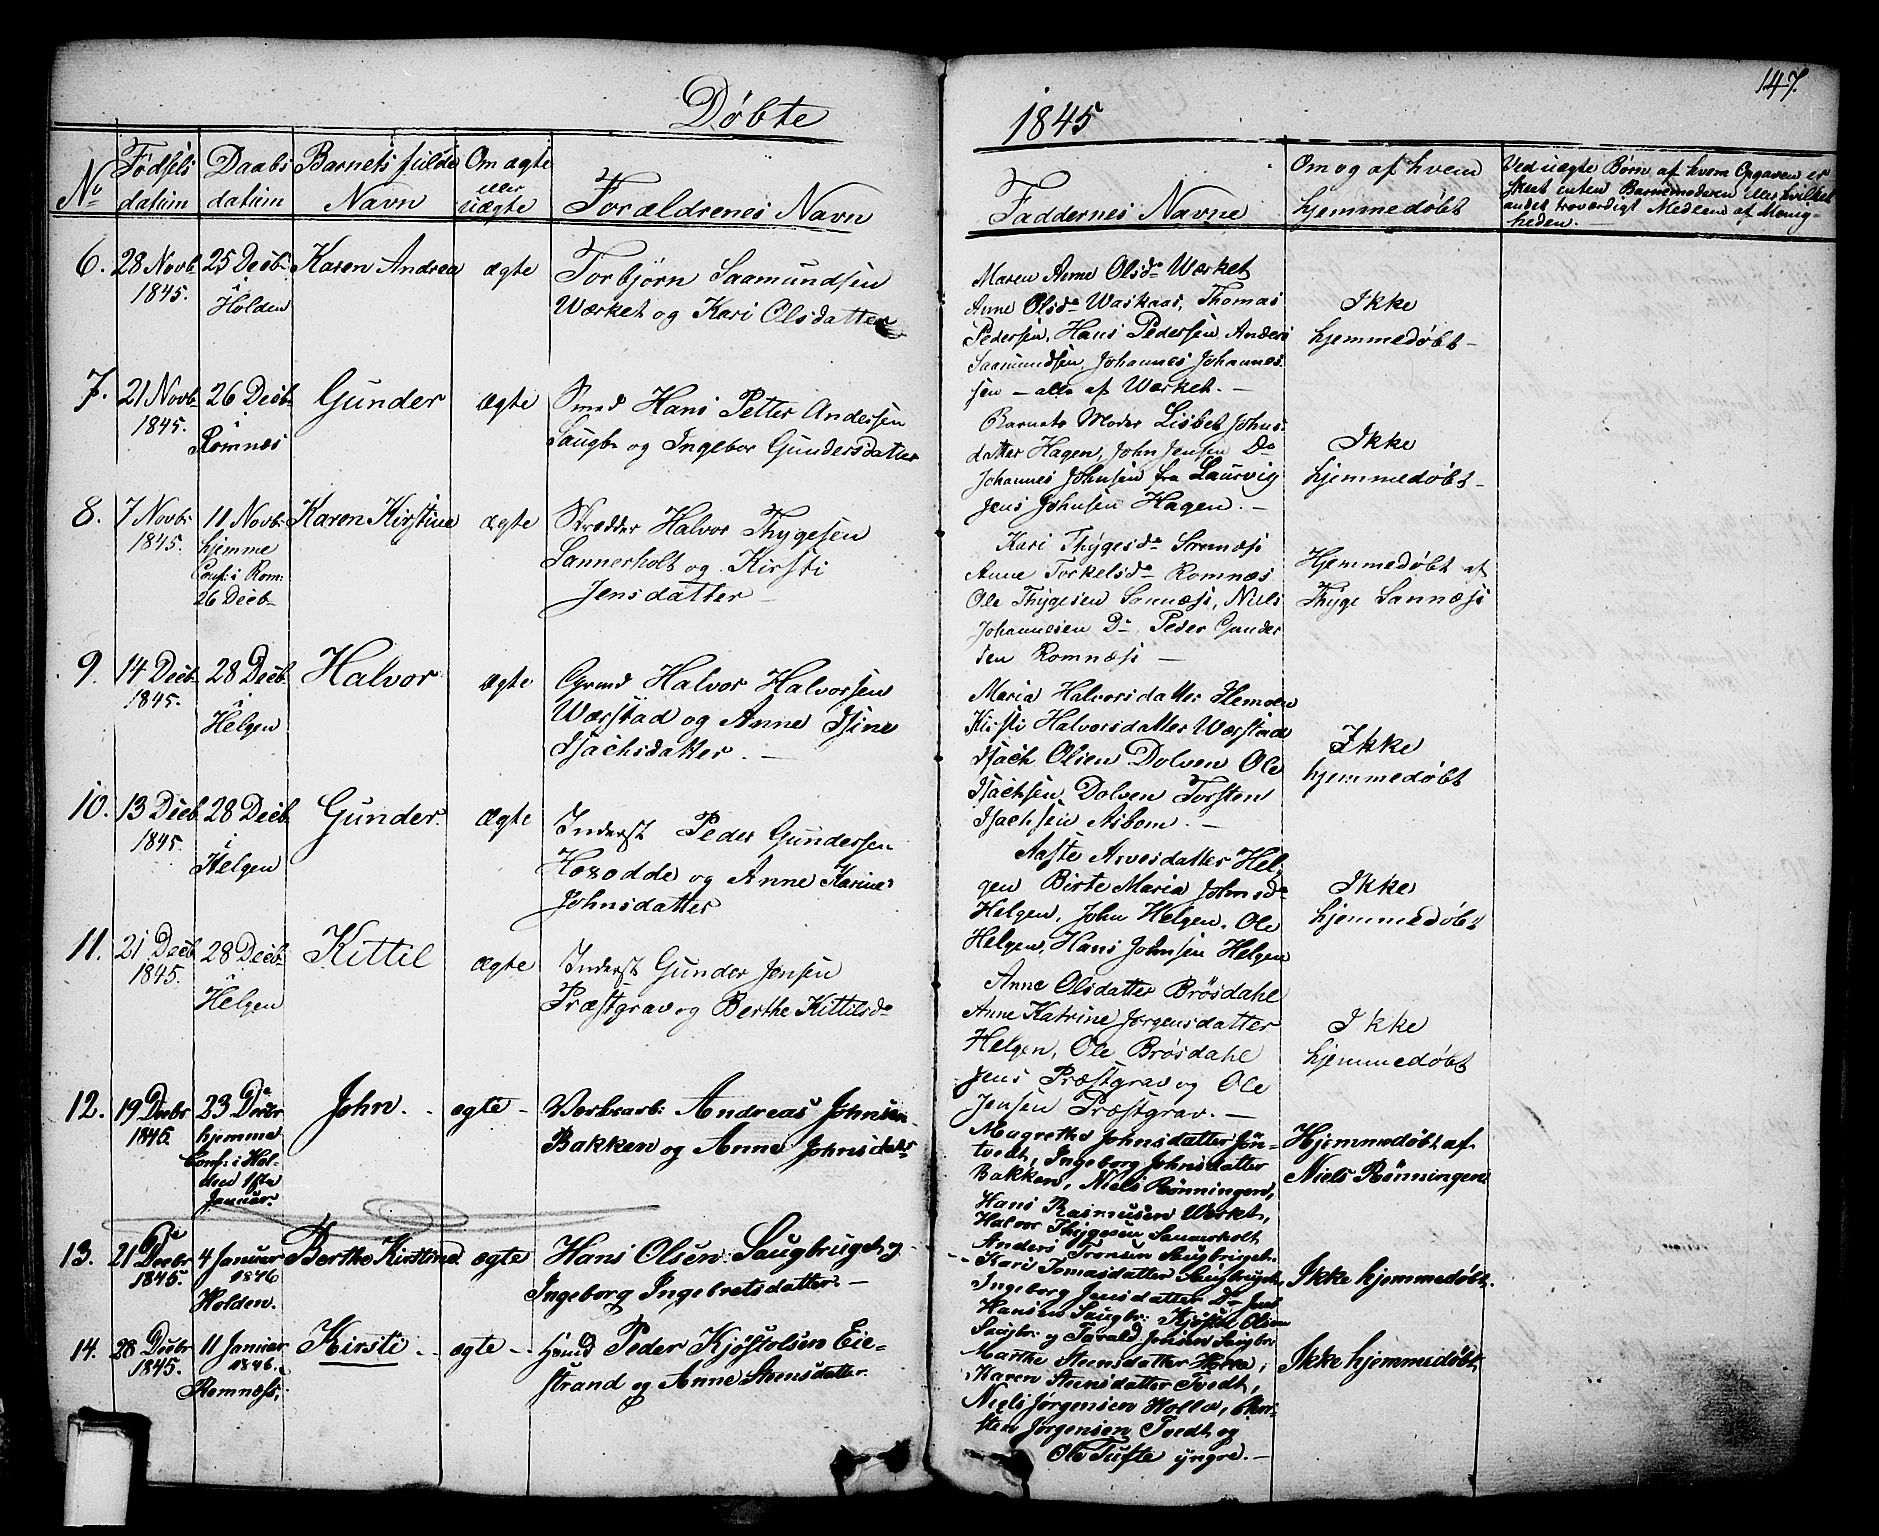 147.
Døbte
1845
No
Fødsels datum
Daabs datum
Barnets fulde Navn
Om ægte eller uægte
Forældrenes Navn
Faddernes Navne
Om og af hvem hjemmedøbt
Ved uægte Børn af hvem Opgaven er
skeet enten Barnemoderen eller hvilket
andet troværdigt Medlem af Menig-
heden.
6.
28 Novb
1845.
25 Decb
i
Holden
Karen Andrea
ægte
Torbjørn Saamundsen
Wærket og Kari Olsdatter
Maren Anne Olsd. Wærket
Anne Olsd. Waskaas, Thomas
Pedersen, Hans Pedersen, Anders
Saamundsen, Johannes Johannes-
sen – alle af Wærket. –
Ikke
hjemmedøbt –
7.
21 Novb
1845.
26 Decb
i
Romnæs
Gunder
ægte
Smed Hans Petter Andersen
Saugb: og Ingebor Gundersdatter
Barnets Moder Lisbet Johns-
datter Hagen, John Jensen Do
Johannes Johnsen fra Laurvig
Jens Johnsen Hagen. –
Ikke
hjemmedøbt –
8.
7 Novb:
1845.
11 Novb:
hjemme
Conf: i Rom:
26 Decb
Karen Kirstine
ægte
Skrædder Halvor Thygesen
Sannerholt og Kirsti
Jensdatter –
Kari Thygesd.
Anne Torkelsd. Romnæs
Ole Thygesen Sannæs, Niels
Johannesen Do, Peder Gunder
sen Romnæs –
Hjemmedøbt af
Thyge Sannæs
9.
14 Decb
1845.
28 Decb
i
Helgen
Halvor
ægte
Gmd Halvor Halvorsen
Wærstad og Anne Isine
Isachsdatter. –
Maria Halvorsdatter Hemoen
Kirsti Halvorsdatter Wærstad
Isach Olsen Dolven Ole
Isachsen Dolven Torsten
Isachsen Asbom. –
Ikke
hjemmedøbt
10.
13 Decb
1845.
28 Decb
i
Helgen
Gunder.
ægte
Inderst Peder Gundersen
Hoxodde og Anne Karine
Johnsdatter
Aaste Arvesdatter Hel-
gen Birte Maria Johnsd.
Helgen, John Helgen, Ole
Helgen, Hans Johnsen Helgen
Ikke
hjemmedøbt
11.
21 Decb
1845.
28 Decb
i
Helgen
Kittil
ægte
Inderst Gunder Jensen
Præstgrav og Berthe Kittilsd.
Anne Olsdatter Brösdahl
Anne Katrine Jørgensdatter
Helgen, Ole Brösdahl
Jens Præstgrav og Ole
Jensen Præstgrav. –
Ikke
hjemmedøbt
12.
19 Decbr
1845
23 Decbr
hjemme
Conf: i Hol-
den 1ste
Januar.
John.
ægte –
Verksarb: Andreas Johnsen
Bakken og Anne Johnsdatter
Magrethe Johnsdatter Jön-
tvedt, Ingeborg Johnsdatter
Bakken, Niels Rönningen,
Hans Rasmusen Werket,
Halvor Thygesen Sannerholt
Hjemmedøbt af
Niels Rönningen
13.
21 Decbr
1845.
4 Januar
1846
Holden.
Berthe Kirstine
ægte
Hans Olsen Saugbruget og
Ingeborg Ingebretsdatter. –
Anders Tronsen Saugbruget.
Kari Tomasdatter Saugbruget,
Ingeborg Jensdatter Do Jens
Hansen Saugbr: Kjöstol Olsen
Saugbr: og Tarald Jensen Saugbr:
Ikke hjemmedøbt.
14.
28 Decbr
1845.
11 Januar
1846.
Romnæss.
Kirsti
ægte –
Gmd Peder Kjøstolsen Eie-
strand og Anne Steensdatter
Marthe Steensdatter Holla,
Karen Steensdatter Tvedt,
Niels Jørgensen Holla, Thor-
sten Jørgensen Tvedt og
Ole Tufte yngre. –
Ikke hjemmedøbt